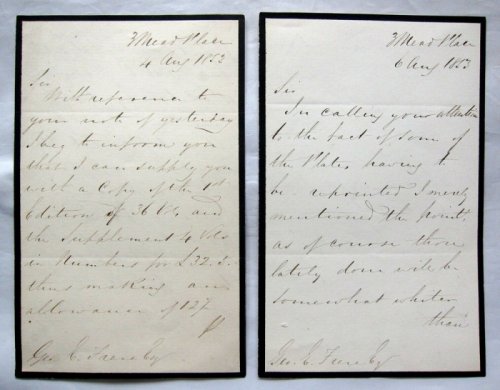 3 Mead Place
4 Aug 1853
Sir
With reference to
your note of yesterday
I beg to inform you
that I can supply you
with a Copy of the 1st
Edition of 36 Vols. and
the Supplement 4 Vols
in Numbers for £32.3.
thus making an
allowance of £27
Geo. C.
3 Mead Place
6 Aug 1853
Sir
In calling your attention
to the fact of som of
the Plates having to
be reprinted I merely
mentioned the point,
as of course those
lately done will be
somewhat whiter
than
Geo. C.